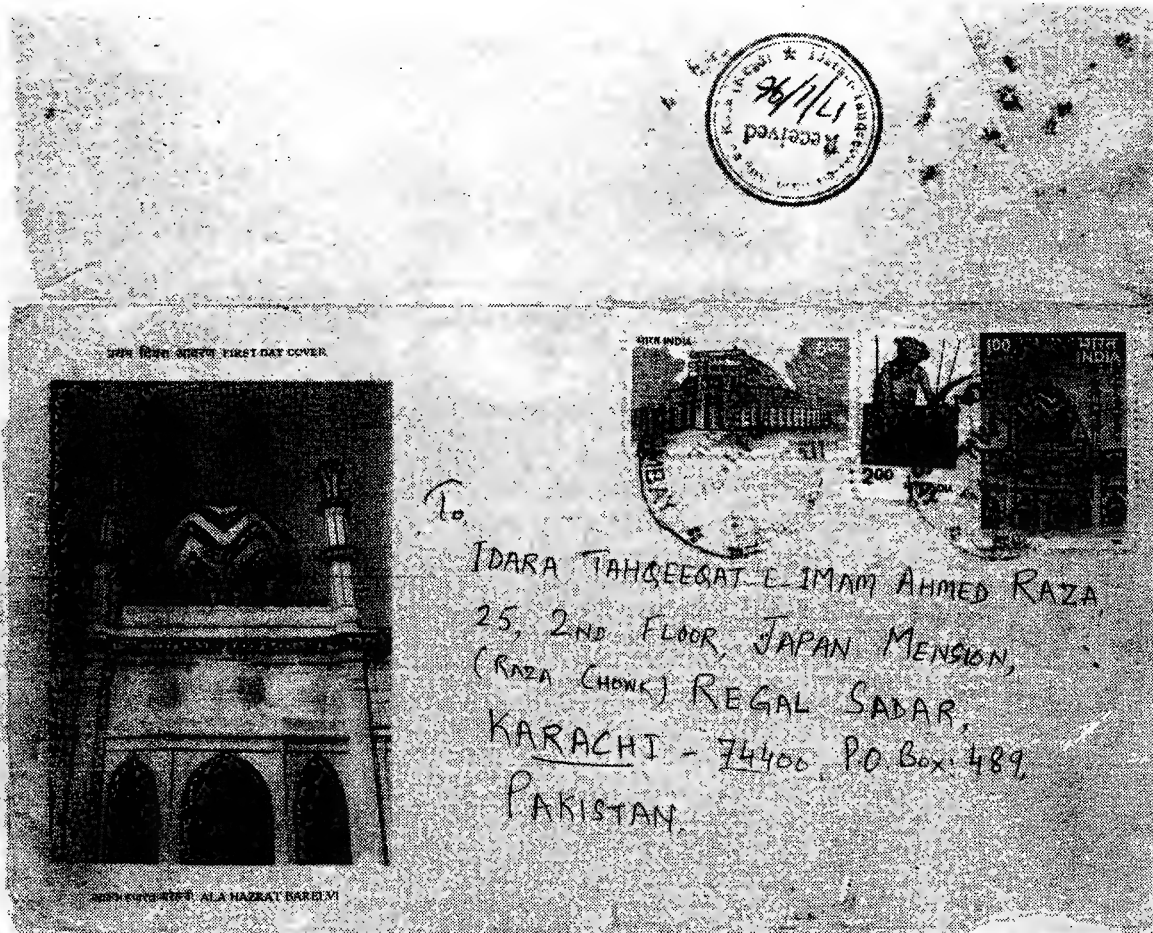 Received
17/1/96
प्रथम दिवस आवरण FIRST DAY COVER
भारत INDIA
200
100 भारत
INDIA
To,
IDARA TAHQEEQAT-E-IMAM AHMED RAZA,
25, 2ND FLOOR, JAPAN MENSION,
(RAZA CHOWK) REGAL SADAR,
KARACHI - 74400, P.O. Box: 489,
PAKISTAN.
ALA HAZRAT BARELVI